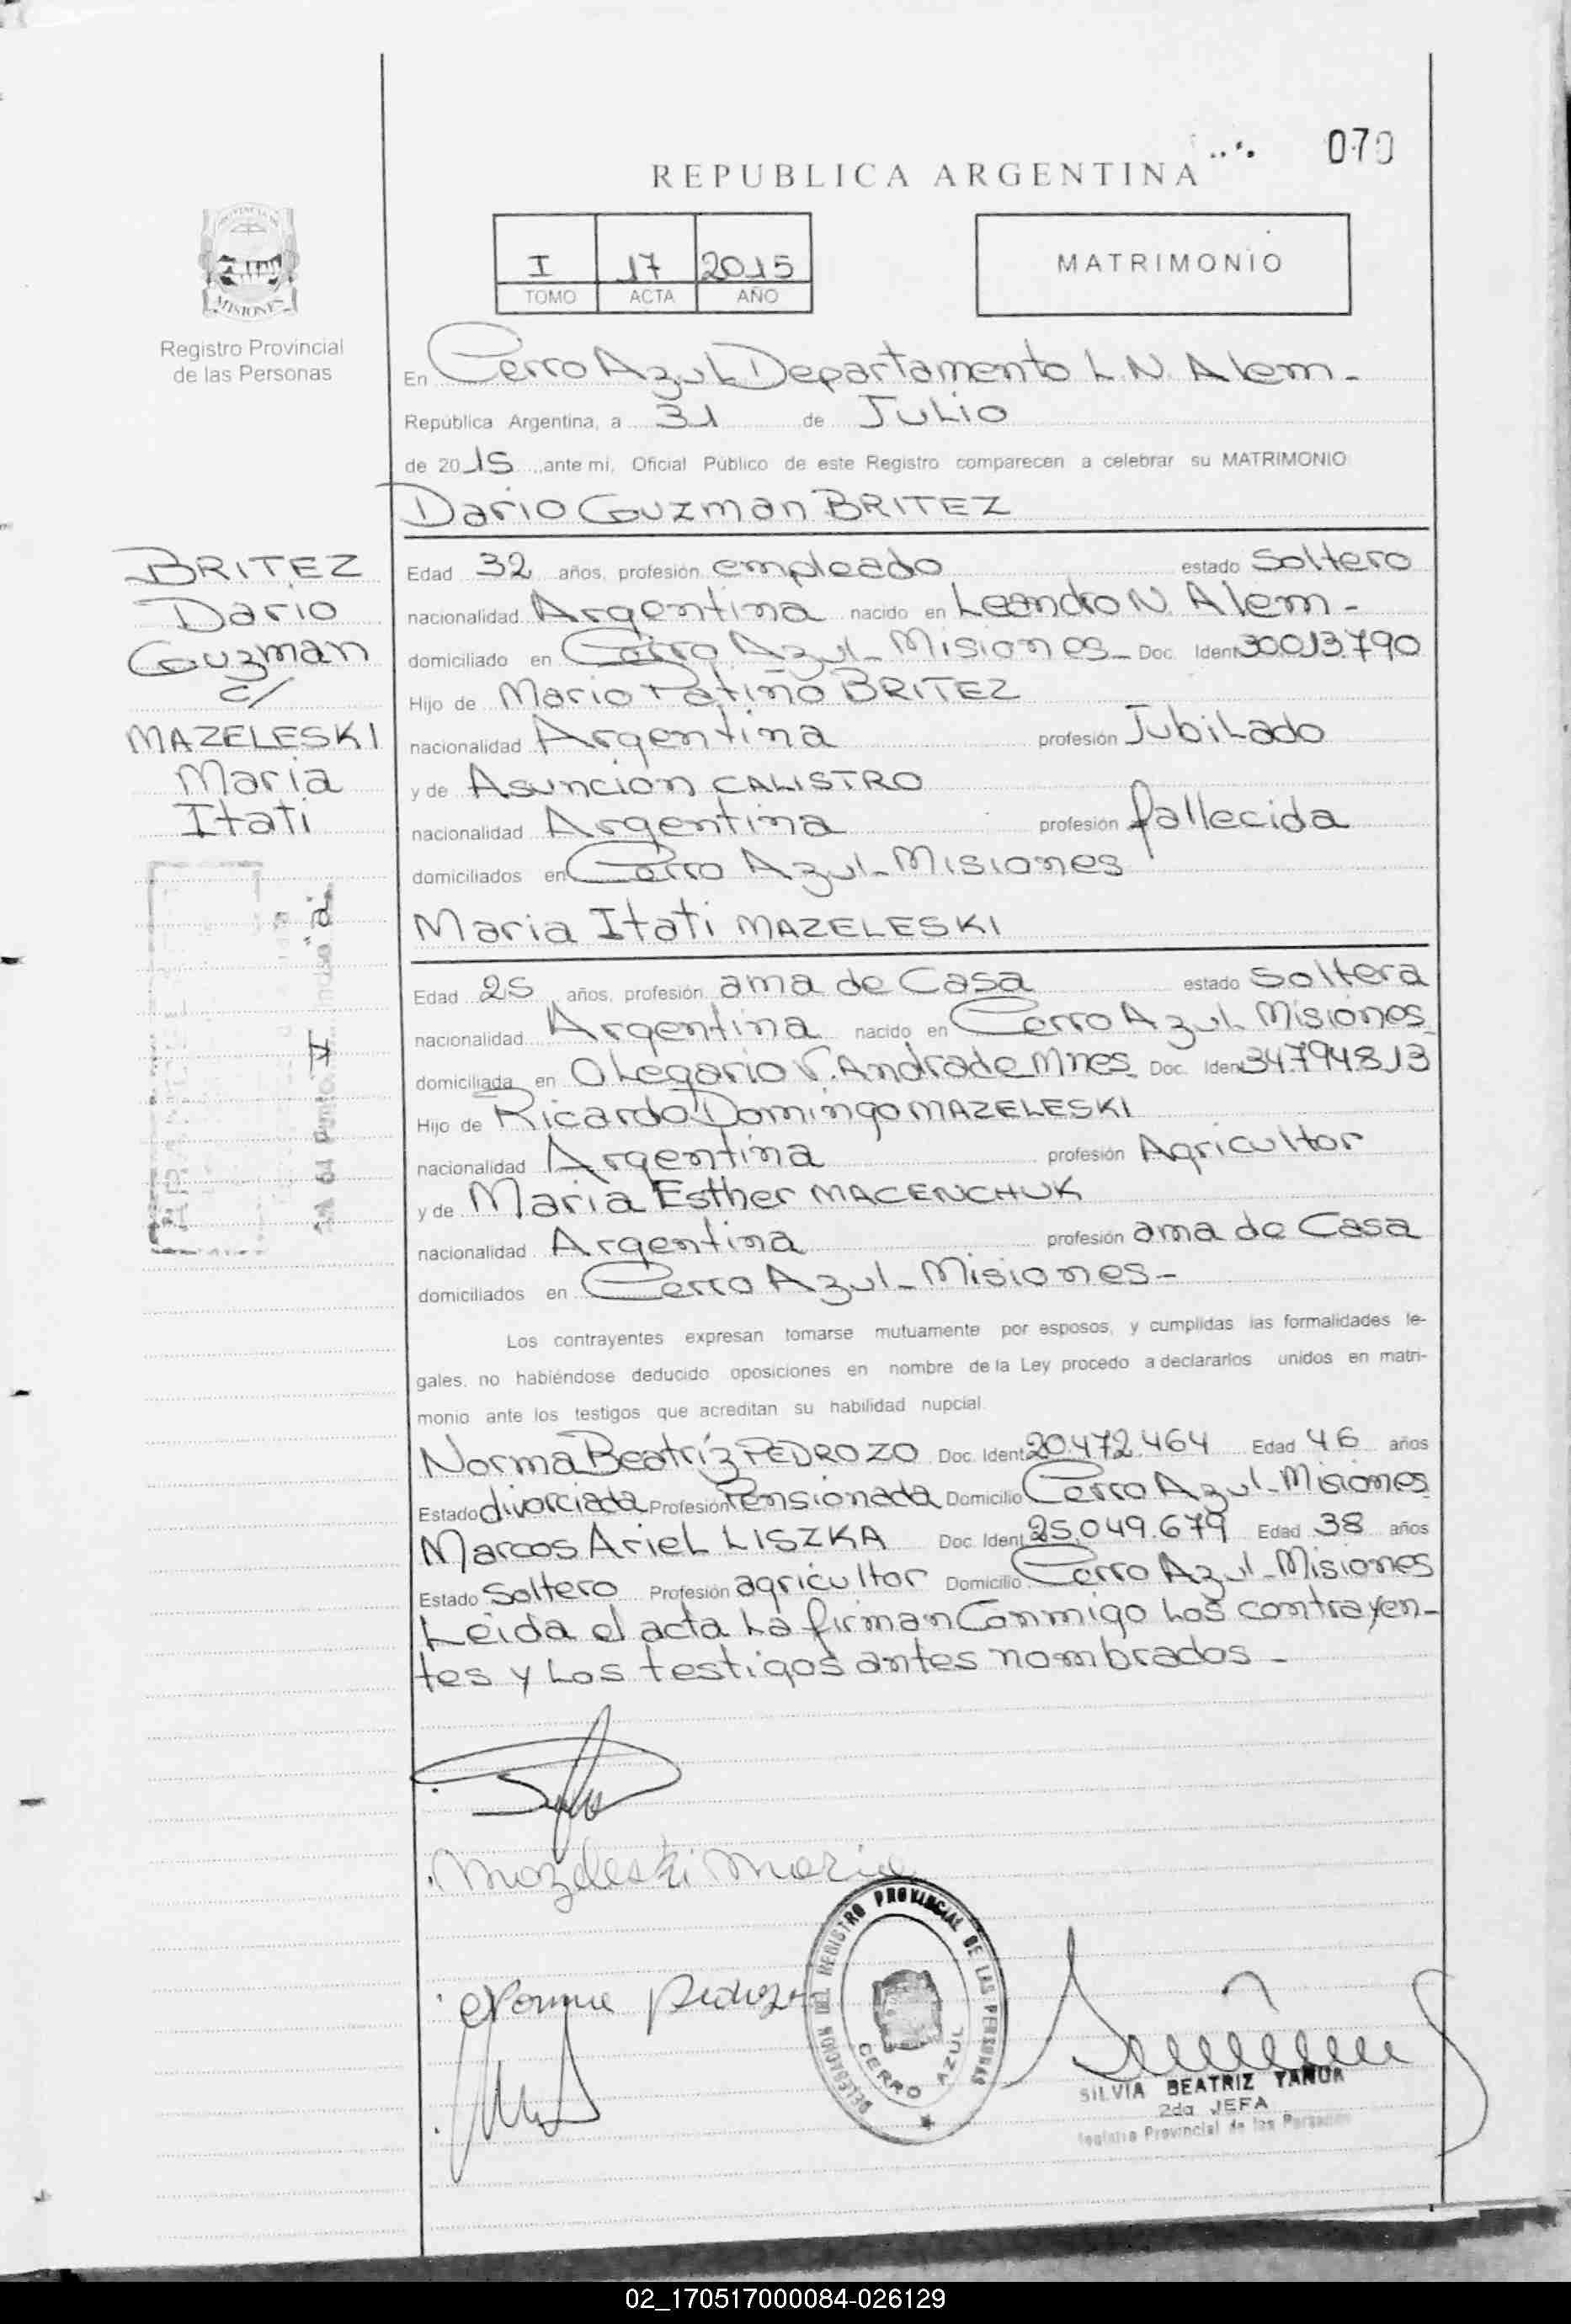 070
REPUBLICA ARGENTINA
I 17 2015
TOMO ACTA AÑO
MATRIMONIO
MISIONES
Registro Provincial
de las Personas
En Cerro Azul Departamento L.N. Alem-
República Argentina, a 31 de Julio
de 2015, ante mi, Oficial Público de este Registro comparecen a celebrar su MATRIMONIO
Dario Guzman BRITEZ
BRITEZ
Dario
Guzman
c/
MAZELESKI
Maria
Itati
Edad 32 años, profesión empleado estado Soltero
nacionalidad Argentina nacido en Leandro N. Alem-
domiciliado en Cerro Azul-Misiones- Doc. Ident 30013.790
Hijo de Mario Patiño BRITEZ
nacionalidad Argentina profesión JubiLado
y de Asuncion CALISTRO
nacionalidad Argentina profesión fallecida
domiciliados en Cerro Azul-Misiones
Maria Itati MAZELESKI
Edad 25 años, profesión ama de Casa estado Soltera
nacionalidad Argentina nacido en Cerro Azul Misiones
domiciliada en Olegario V. Andrade Mnes. Doc. Ident 34.794.813
Hijo de Ricardo Domingo MAZELESKI
nacionalidad Argentina profesión Agricultor
y de Maria Esther MACENCHUK
nacionalidad Argentina profesión ama de Casa
domiciliados en Cerro Azul-Misiones-
Los contrayentes expresan tomarse mutuamente por esposos, y cumplidas las formalidades le-
gales, no habiéndose deducido oposiciones en nombre de la Ley procedo a declararlos unidos en matri-
monio ante los testigos que acreditan su habilidad nupcial
Norma Beatríz PEDROZO Doc. Ident 20.472.464 Edad 46 años
Estado divorciada Profesión Pensionada Domicilio Cerro Azul-Misiones
Marcos Ariel LISZKA Doc. Ident 25.049.679 Edad 38 años
Estado Soltero Profesión agricultor Domicilio Cerro Azul-Misiones
Leida el acta la firman Conmigo los contrayen-
tes y los testigos antes nombrados-
Mazeleski Maria
Norma Pedrozo
DELEGACION DEL REGISTRO PROVINCIAL DE LAS PERSONAS
CERRO AZUL
SILVIA BEATRIZ
2da JEFA
Registro Provincial de las Personas
02_170517000084-026129